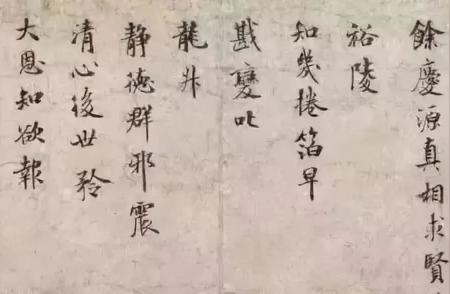 餘慶源真相求賢
裕陵
知幾捲箔早
戡變叱
龍升
静德群邪震
清心後世矜
大恩知欲報